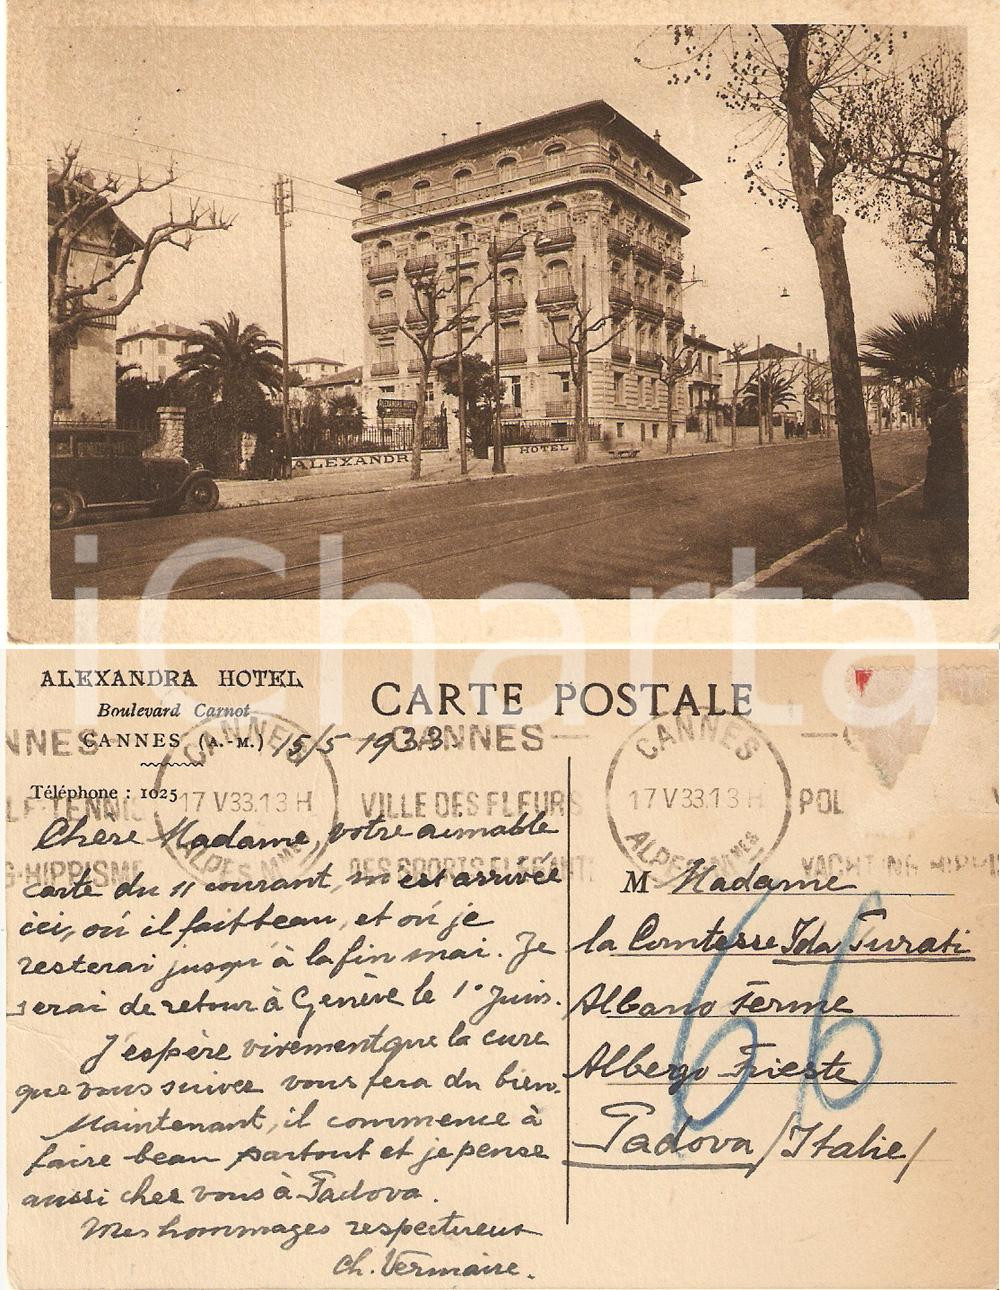 ALEXANDRA HOTEL
ALEXANDR
HOTEL
iCharta
ALEXANDRA HOTEL
Boulevard Carnot
CANNES (A.-M.)
Téléphone : 1025
CARTE POSTALE
15/5 1933.
NNES
CANNES
17 V 33.13 H
ALPES MMES
CANNES
VILLE DES FLEURS
DES SPORTS ELEGANT
CANNES
17 V 33.13 H
ALPES MMES
POL
YACHTING HIPPIS
LF-TENNIS
G-HIPPISME
Chère Madame, votre aimable
carte du 11 courant, m'est arrivée
ici, où il fait beau, et où je
resterai jusqu'à la fin mai. Je
serai de retour à Genève le 1° Juin.
J'espère vivement que la cure
que vous suivez vous fera du bien.
Maintenant, il commence à
faire beau partout et je pense
aussi chez vous à Padova.
Mes hommages respectueux
Ch. Vermaire.
M Madame
la Comtesse Ida Turati
Albano Terme
Albergo Trieste
Padova / Italie /
66